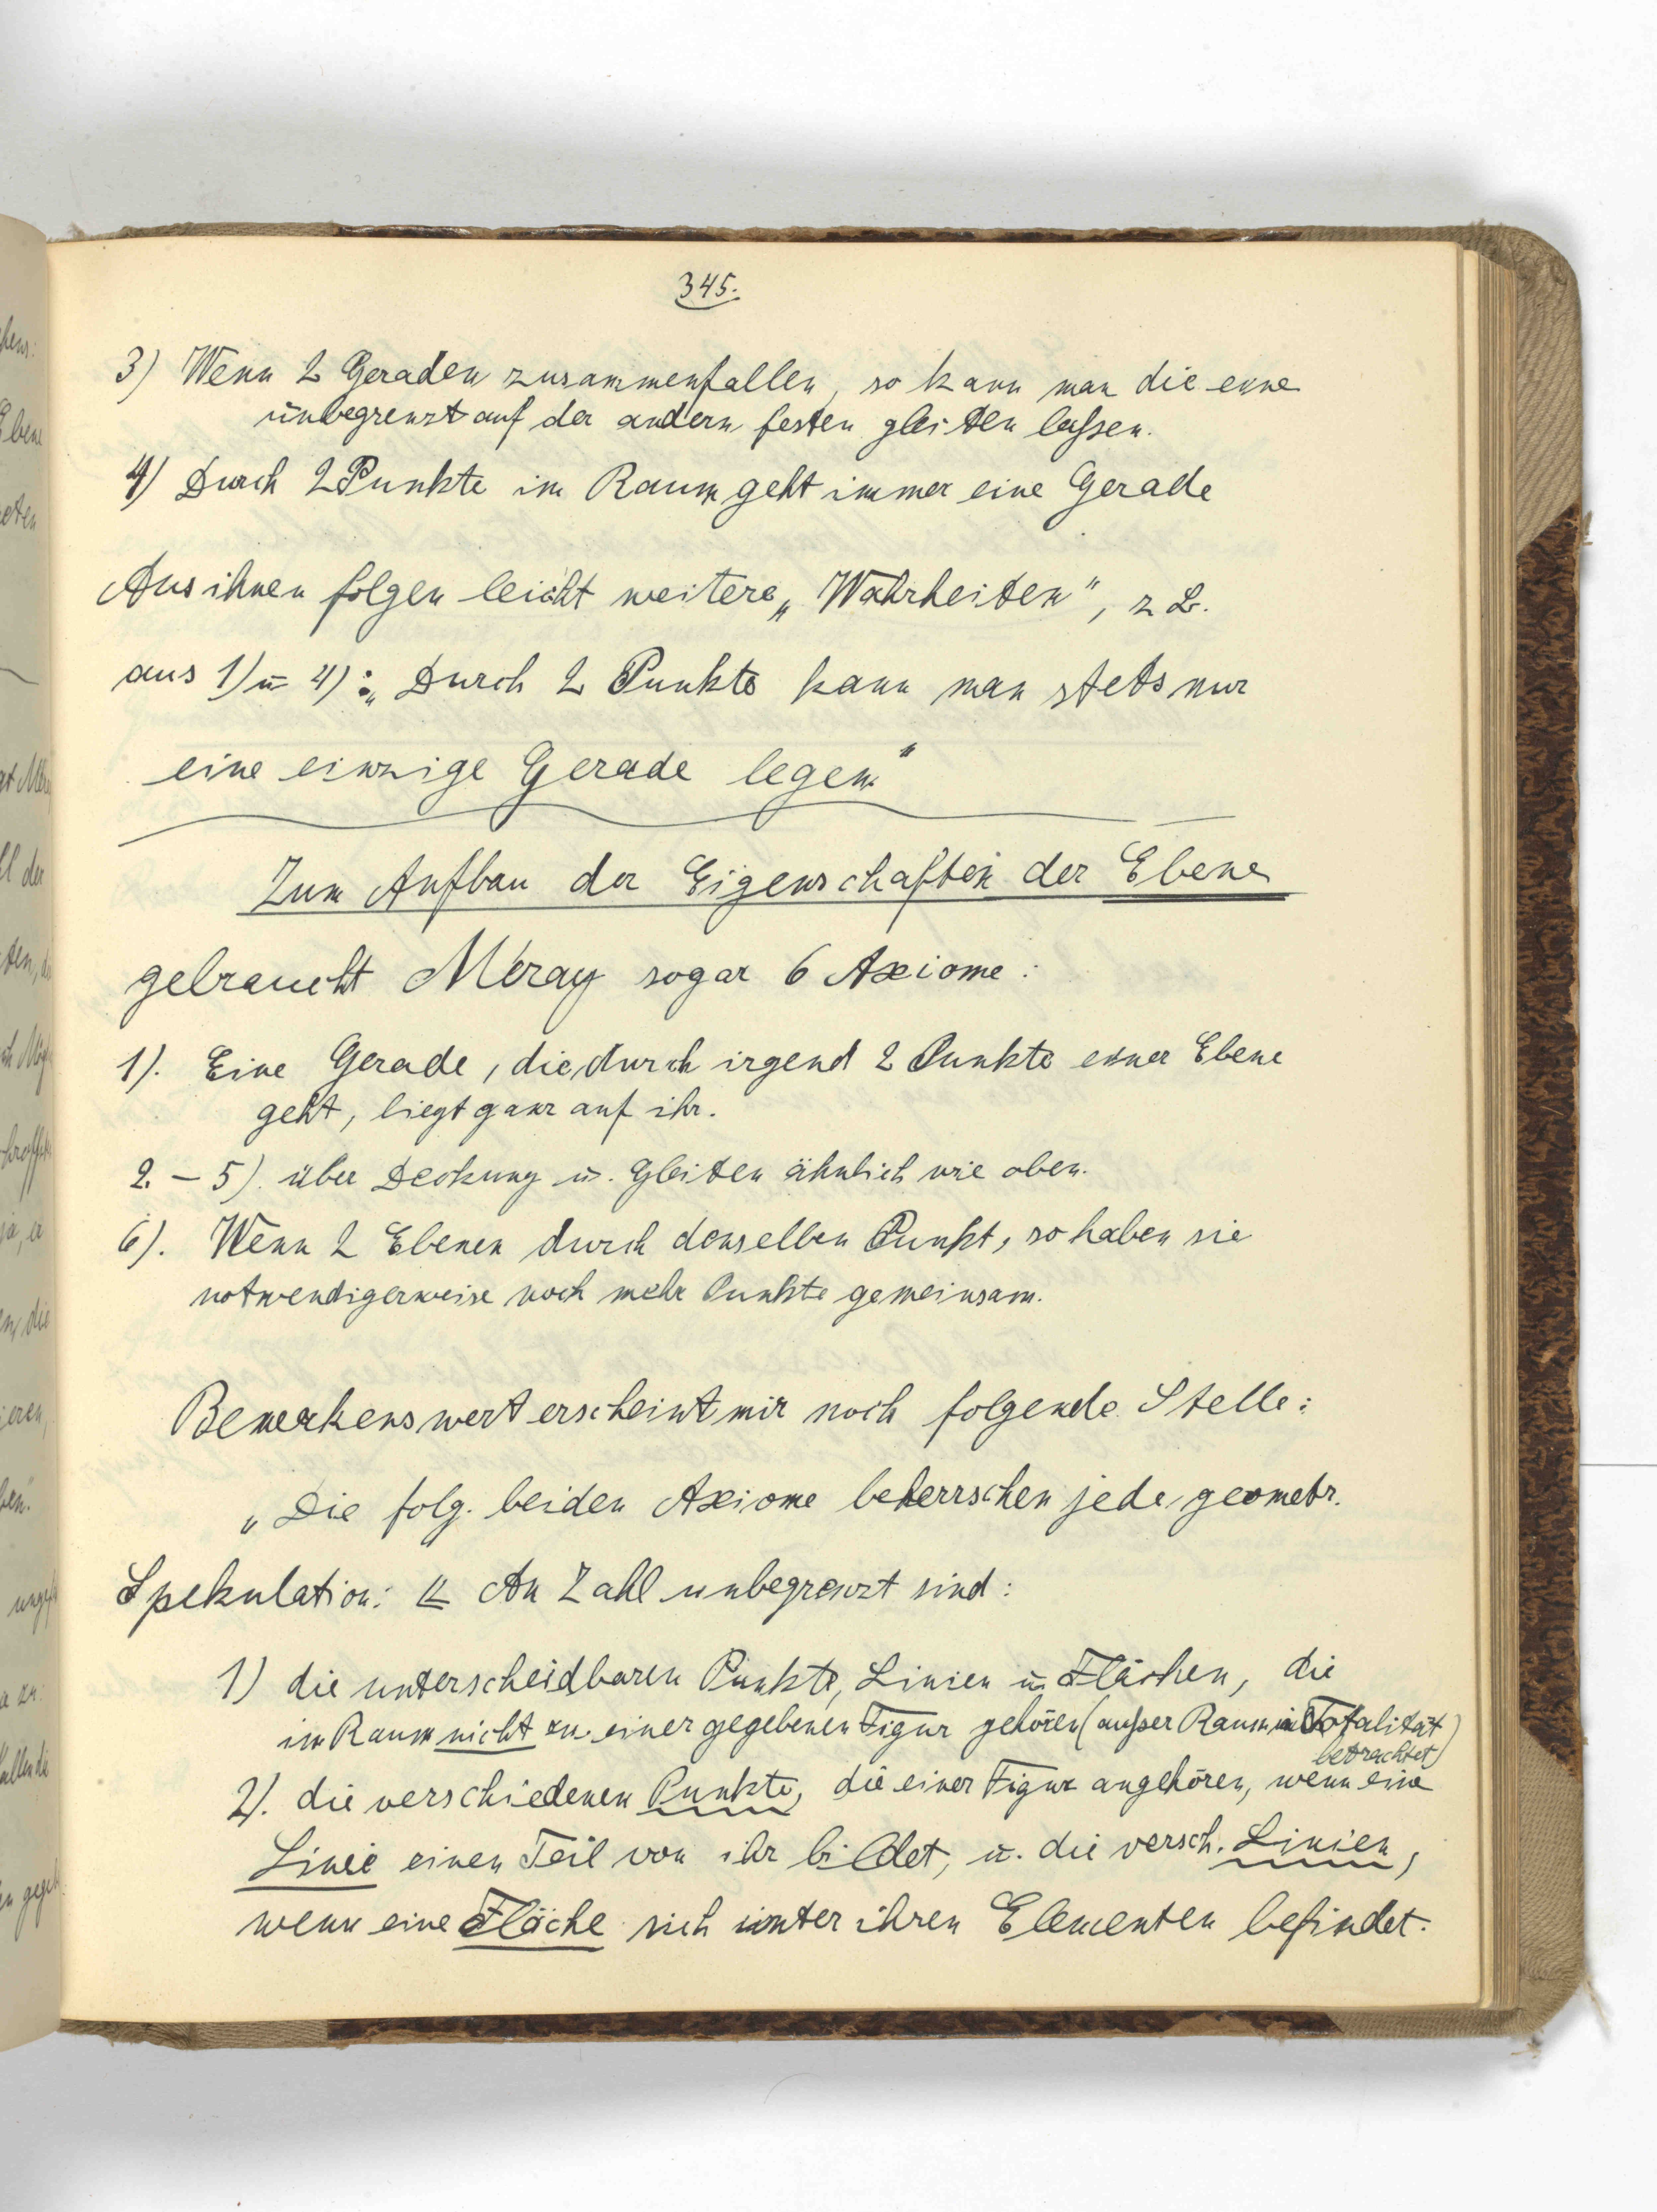 345.
3) Wenn 2 Geraden zusammenfallen, so kann man die eine
unbegrenzt auf der andern festen gleiten lassen.
4) Durch 2 Punkte im Raum geht immer eine Gerade
Aus ihnen folgen leicht weitere „Wahrheiten", z B.
aus 1) u 4): „Durch 2 Punkte kann man stets nur
eine einzige Gerade legen."
Zum Aufbau der Eigenschaften der Ebene
gebraucht Méray sogar 6 Axiome:
1). Eine Gerade, die durch irgend 2 Punkte einer Ebene
geht, liegt ganz auf ihr.
2. – 5). über Deckung u. Gleiten ähnlich wie oben.
6). Wenn 2 Ebenen durch denselben Punkt, so haben sie
notwendigerweise noch mehr Punkte gemeinsam.
Bemerkenswert erscheint mir noch folgende Stelle:
„Die folg. beiden Axiome beherrschen jede geometr.
Spekulation: An Zahl unbegrenzt sind:
1) die unterscheidbaren Punkte, Linien u Flächen, die
im Raum nicht zu einer gegebenen Figur gehören (außer Raum in Totalität
betrachtet)
2). die verschiedenen Punkte, die einer Figur angehören, wenn eine
Linie einen Teil von ihr bildet, u. die versch. Linien,
wenn eine Fläche sich unter ihren Elementen befindet.